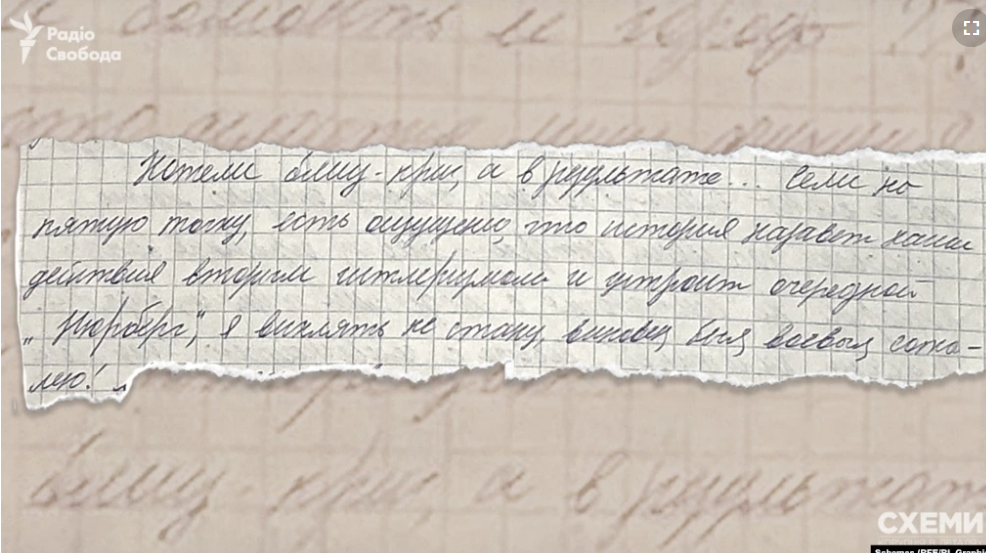 Радіо
Свобода
Хотели блиц-криг, а в результате... Сели на
пятую точку, есть ощущение, что история назовет наши
действия вторым гитлеризмом и устроит очередной
„Нюрнберг“, я вилять не стану, виновен, был, воевал, сожа-
лею!
блиц-криг, а в результат
СХЕМИ
Schemes (RFE/RL Graphi